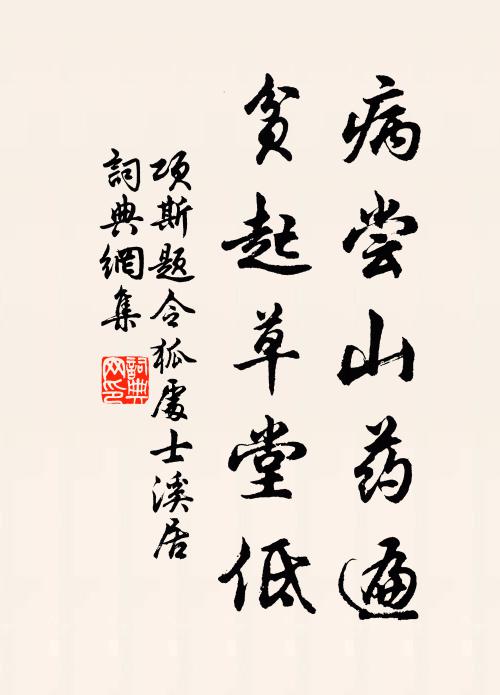 病尝山药遍
贫起草堂低
项斯题令狐處士溪居
詞典網集
詞典网印